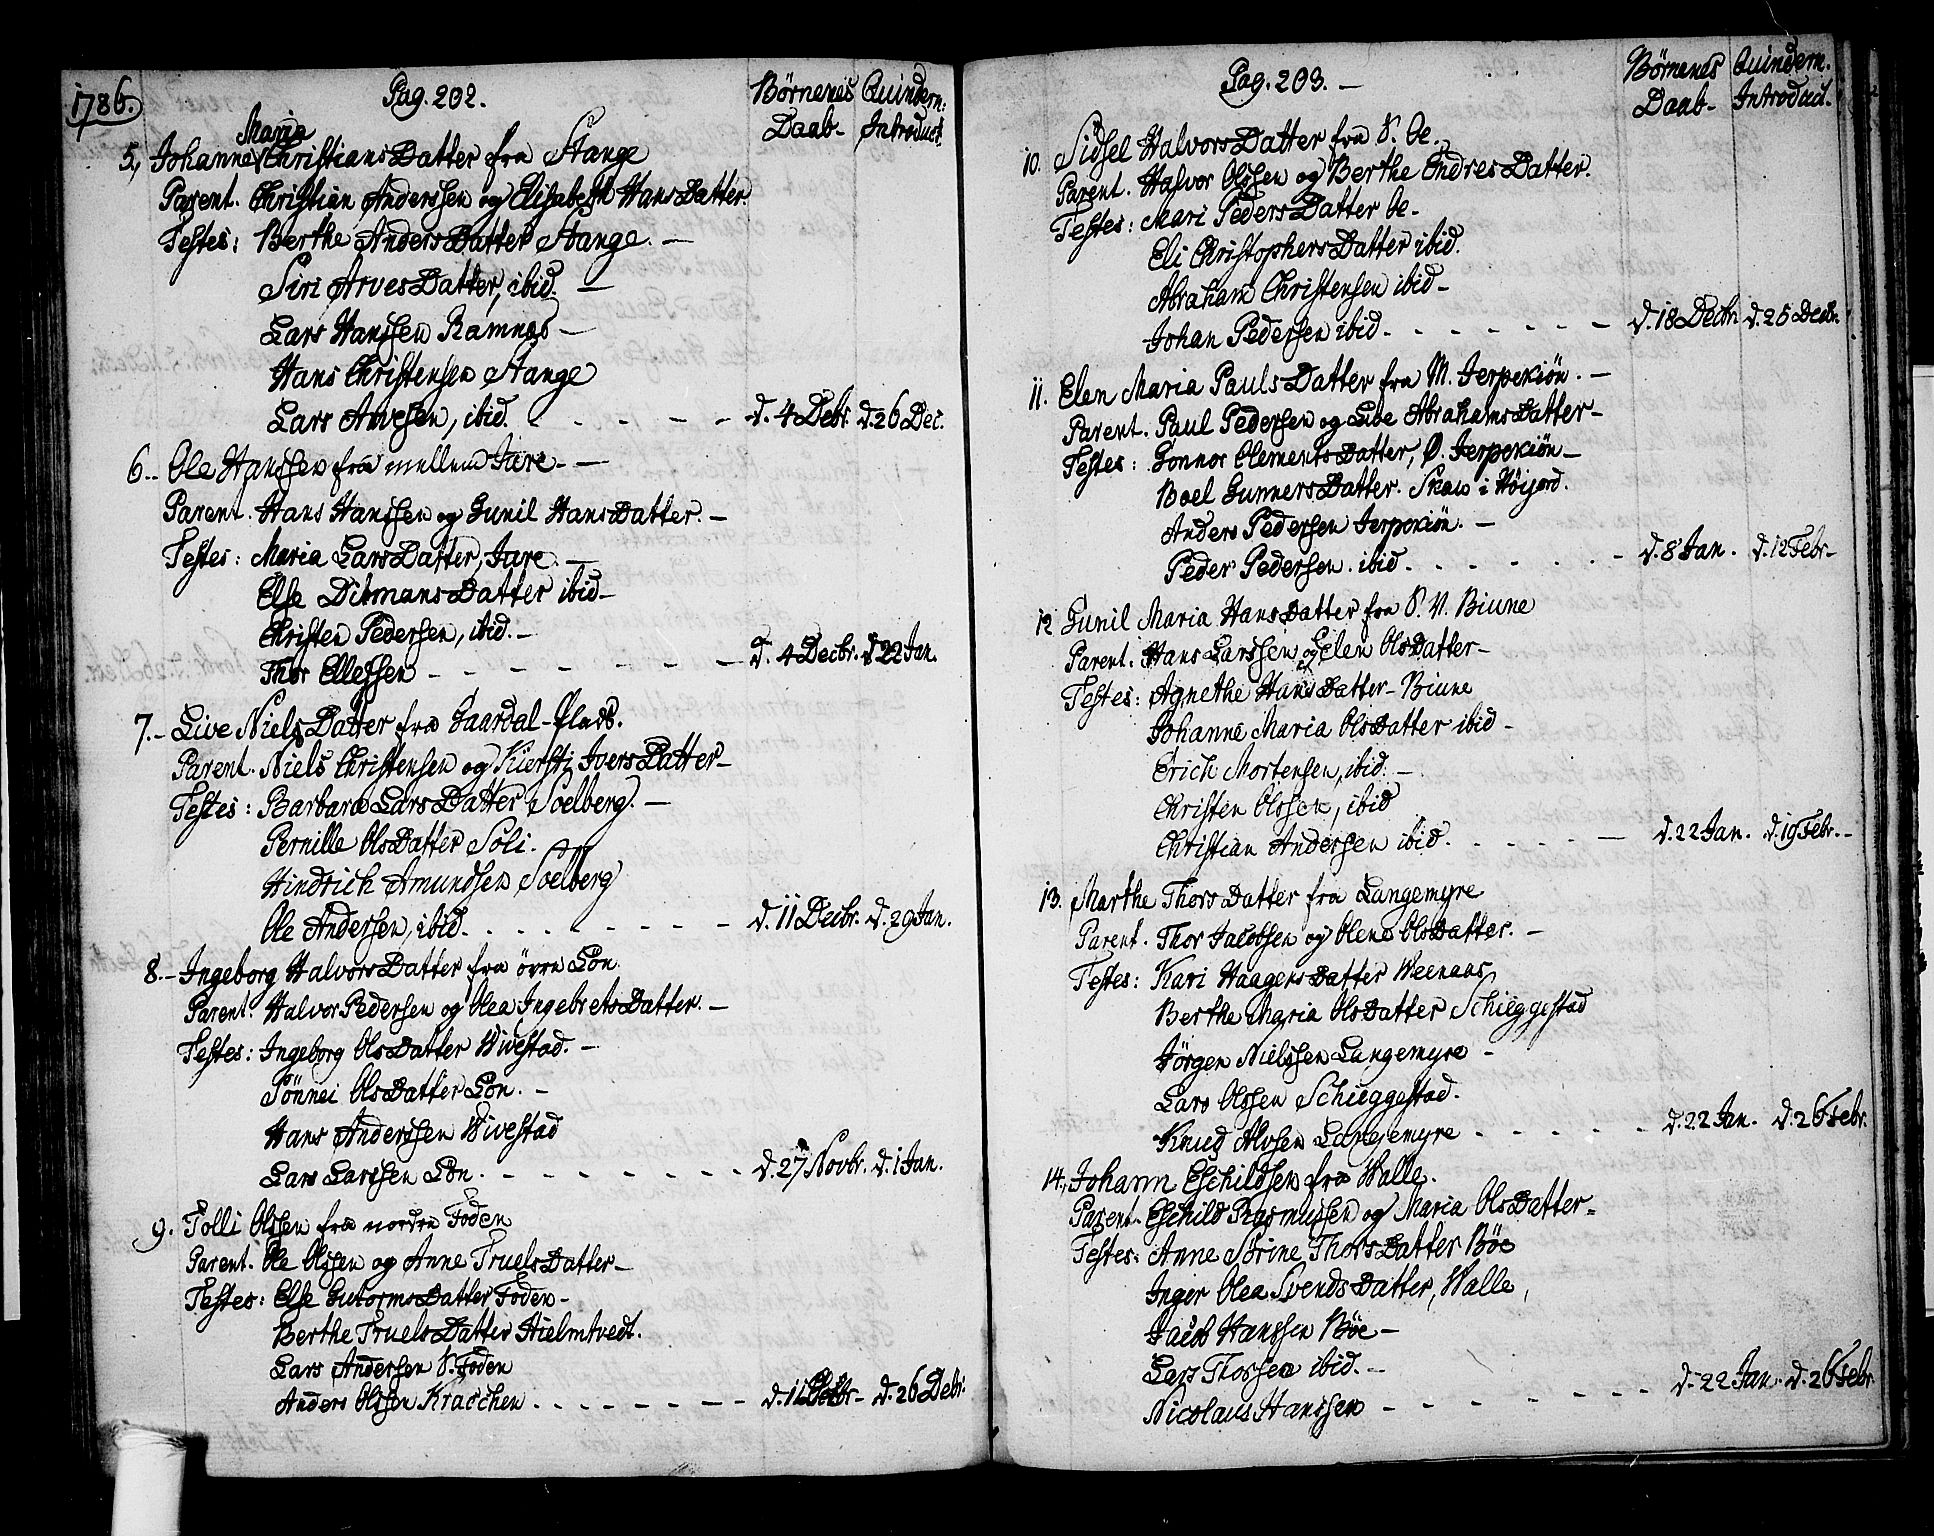 1786.
Pag. 202.
Börnenes Daab-
Quindern: Introduct.
Maria
5., Johanne ChristiansDatter fra Stange
Parent. Christian Anderssen og Elisabeth HansDatter.
Testes: Berthe AndersDatter Stange. —
Siri ArvesDatter, ibid. —
Lars Hanssen Ramnes —
Hans Christensen Stange
Lars Arvesen, ibid. - - - - d. 4 Debr. d. 26 Dec.
6.. Ole Hanssen fra mellem Jare. —
Parent. Hans Hanssen og Gunil HansDatter. —
Testes: Maria LarsDatter, Jare. —
Else DitmansDatter ibid—
Christen Pedersen, ibid. —
Thor Ellefsen - - - - - - d. 4 Decbr. d. 22 Jan.
7.- Live NielsDatter fra Gaardal-Plads.
Parent. Niels Christensen og Kiersti IversDatter—
Testes: Barbara LarsDatter Soelberg. —
Pernille OlsDatter Soli.
Hindrich Amundsen Soelberg
Ole Andersen, ibid. . . . - - - - d. 11 Decbr. d. 29 Jan.
8.- Ingeborg HalvorsDatter fra övre Lön
Parent. Halvor Pedersen og Olea IngebretsDatter. —
Testes: Ingeborg OlsDatter Wivestad. —
Sönnei OlsDatter Lön. —
Hans Anderssen Wivestad
Lars Larssen Lön. - - - - - - - d. 27 Novbr. d. 1 Jan.
9. Tolli Olssen fra nordre Foden
Parent. Ole Olssen og Anne TruelsDatter—
Testes: Else GutormsDatter Foden—
Berthe TruelsDatter Hielmtvedt.
Lars Andersen S. Foden
Anders Olssen Kracchen . . . . . - - - d. 11 - d. 26 Debr.
Pag. 203. —
Börnenes Daab-
Quindern. Introduct.
10. Sidsel HalvorsDatter fra S. Oe.
Parent. Halvor Olssen og Berthe EndresDatter.
Testes: Mari PedersDatter Oe—
Eli ChristophersDatter ibid.
Abraham Christensen ibid—
Johan Pedersen ibid. - - - - - - d. 18 Decbr d. 25 Decbr.
11. Elen Maria PaulsDatter fra M. Jerpekiön. —
Parent. Paul Pedersen og Live AbrahamsDatter—
Testes: Gonnor ClementsDatter, Ø. Jerpekiön—
Boel GunnersDatter. Skau i Höijord.
Anders Pedersen Jerpekiön. —
Peder Pedersen. ibid. . . . . . . - d. 8 Jan. d. 12 Febr—
12 Gunil Maria HansDatter fra S. V. Biune
Parent. Hans Larssen og Elen OlsDatter—
Testes: Agnethe HansDatter— Biune
Johanne Maria OlsDatter ibid —
Erich Mortensen, ibid. —
Christen Olssen, ibid
Christian Andersen ibid. . . . . . - d. 22 Jan. d. 19 Febr.-
13. Marthe ThorsDatter fra Langemyre
Parent. Thor Jacobsen og Olene OlsDatter. —
Testes: Kari HaagensDatter Weenaas
Berthe Maria OlsDatter Schieggestad
Jörgen Nielssen Langemyre —
Lars Olssen Schieggestad.
Knud Alvsen Langemyre - - - - - d. 22 Jan. d. 26 Febr.
14., Johann Eschildsen fra Walle.
Parent. Eschild Rasmussen og Maria OlsDatter—
Testes: Anne Sörine ThorsDatter Böe
Inger Olea SvendsDatter, Walle,
Jacob Hanssen Böe—
Lars Thorssen ibid. —
Nicolaus Hanssen - - - - - - d. 22 Jan. d. 26 Febr.